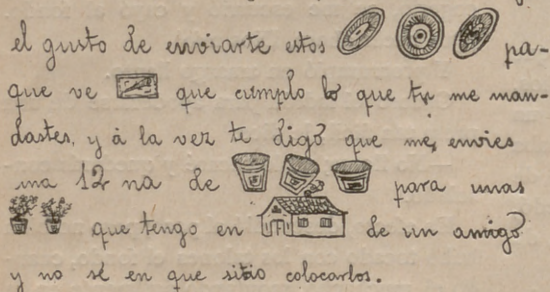 el gusto de enviarte estos pa-
que ve que cumplo lo que tu me man-
dastes, y à la vez te digo que me, envies
una 12 na de para unas
que tengo en de un amigo
y no sé en que sitio colocarlos.